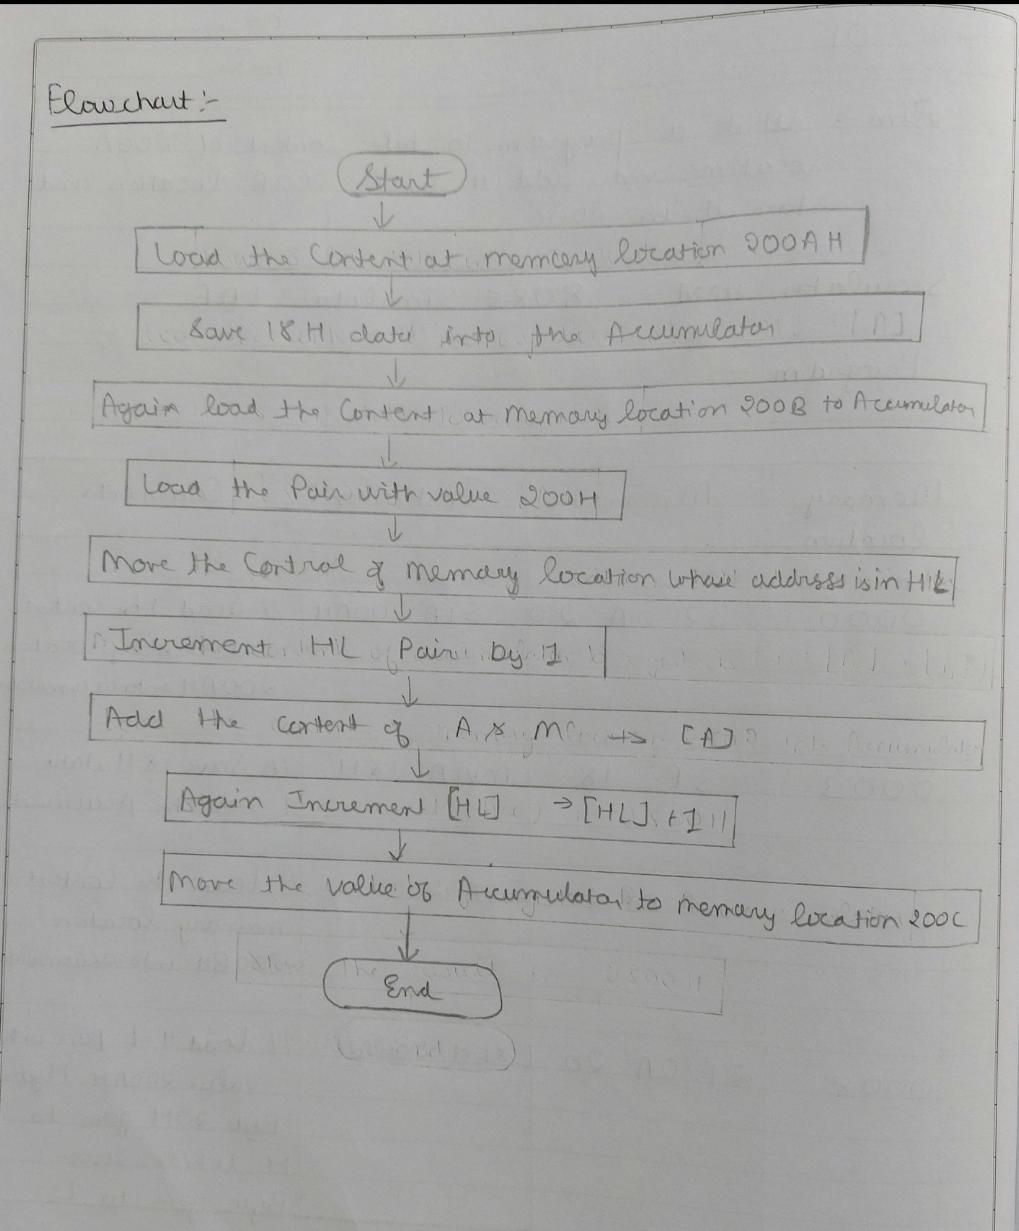 Flowchart :-
Start
Load the Content at memory location 200A H
Save 18 H data into the Accumulator
Again load the Content at Memory location 200B to Accumulator
Load the Pair with value 200H
Move the Control of memory location whose address is in HL
Increment HL Pair by 1
Add the content of A & M → [A]
Again Increment [HL] → [HL] + 1
Move the value of Accumulator to memory location 200C
End